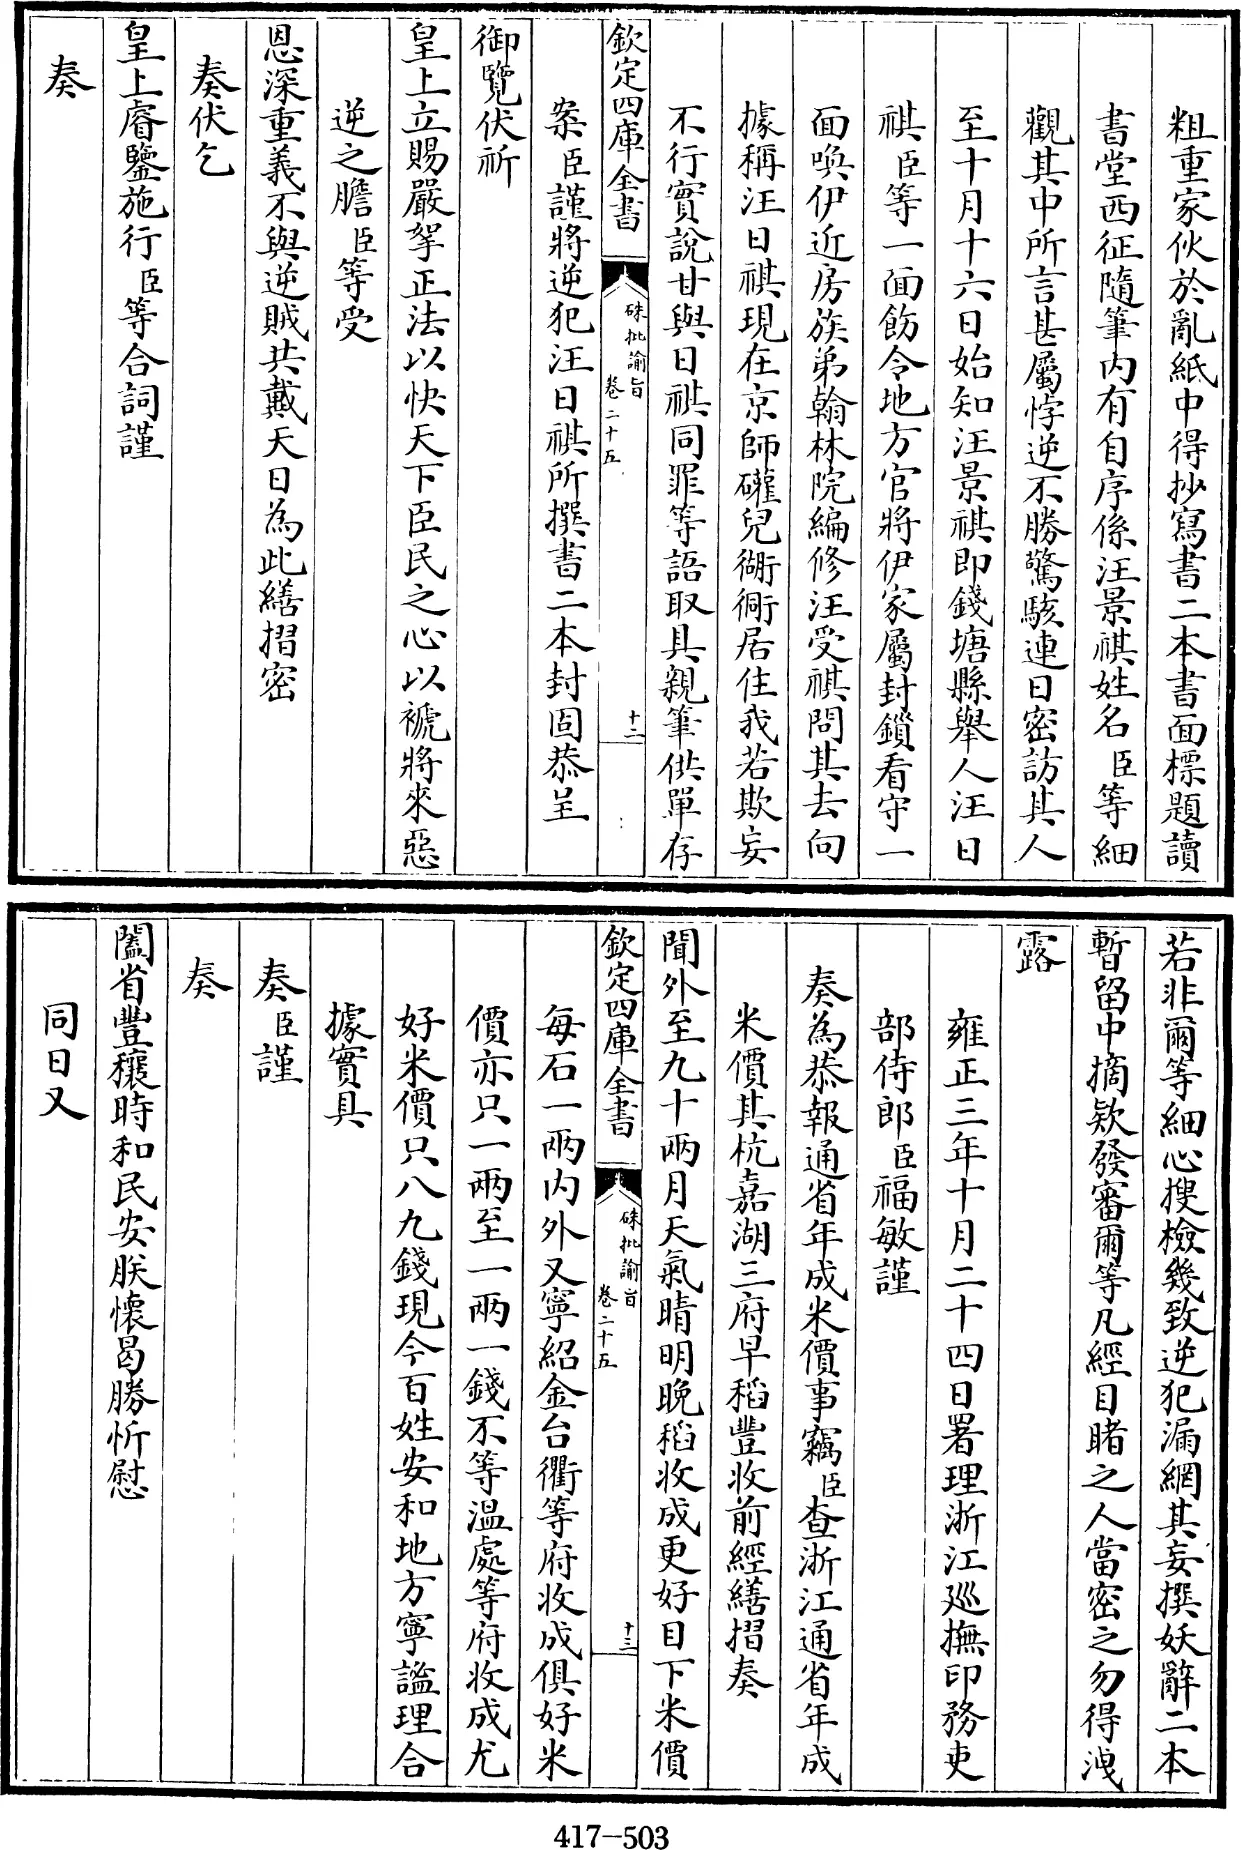 粗重家伙於亂紙中得抄寫書二本書面標題讀
書堂西征隨筆内有自序係汪景祺姓名臣等細
觀其中所言甚屬悖逆不勝驚駭連日密訪其人
至十月十六日始知汪景祺即錢塘縣舉人汪日
祺臣等一面飭令地方官將伊家屬封鎖看守一
面喚伊近房族弟翰林院編修汪受祺問其去向
據稱汪日祺現在京師礶兒衚衕居住我若欺妄
不行實說甘與日祺同罪等語取具親筆供單存
欽定四庫全書
硃批諭旨
卷二十五
十二
案臣謹將逆犯汪日祺所撰書二本封固恭呈
御覽伏祈
皇上立賜嚴拏正法以快天下臣民之心以褫將來惡
逆之膽臣等受
恩深重義不與逆賊共戴天日為此繕摺密
奏伏乞
皇上睿鑒施行臣等合詞謹
奏
若非爾等細心搜檢幾致逆犯漏網其妄撰妖辭二本
暫留中摘欵發審爾等凡經目睹之人當密之勿得洩
露
雍正三年十月二十四日署理浙江廵撫印務吏
部侍郎臣福敏謹
奏為恭報通省年成米價事竊臣查浙江通省年成
米價其杭嘉湖三府早稻豐收前經繕摺奏
聞外至九十兩月天氣晴明晚稻收成更好目下米價
欽定四庫全書
硃批諭旨
卷二十五
十三
每石一兩内外又寧紹金台衢等府收成俱好米
價亦只一兩至一兩一錢不等溫處等府收成尤
好米價只八九錢現今百姓安和地方寧謐理合
據實具
奏臣謹
奏
闔省豐穰時和民安朕懷曷勝忻慰
同日又
417-503